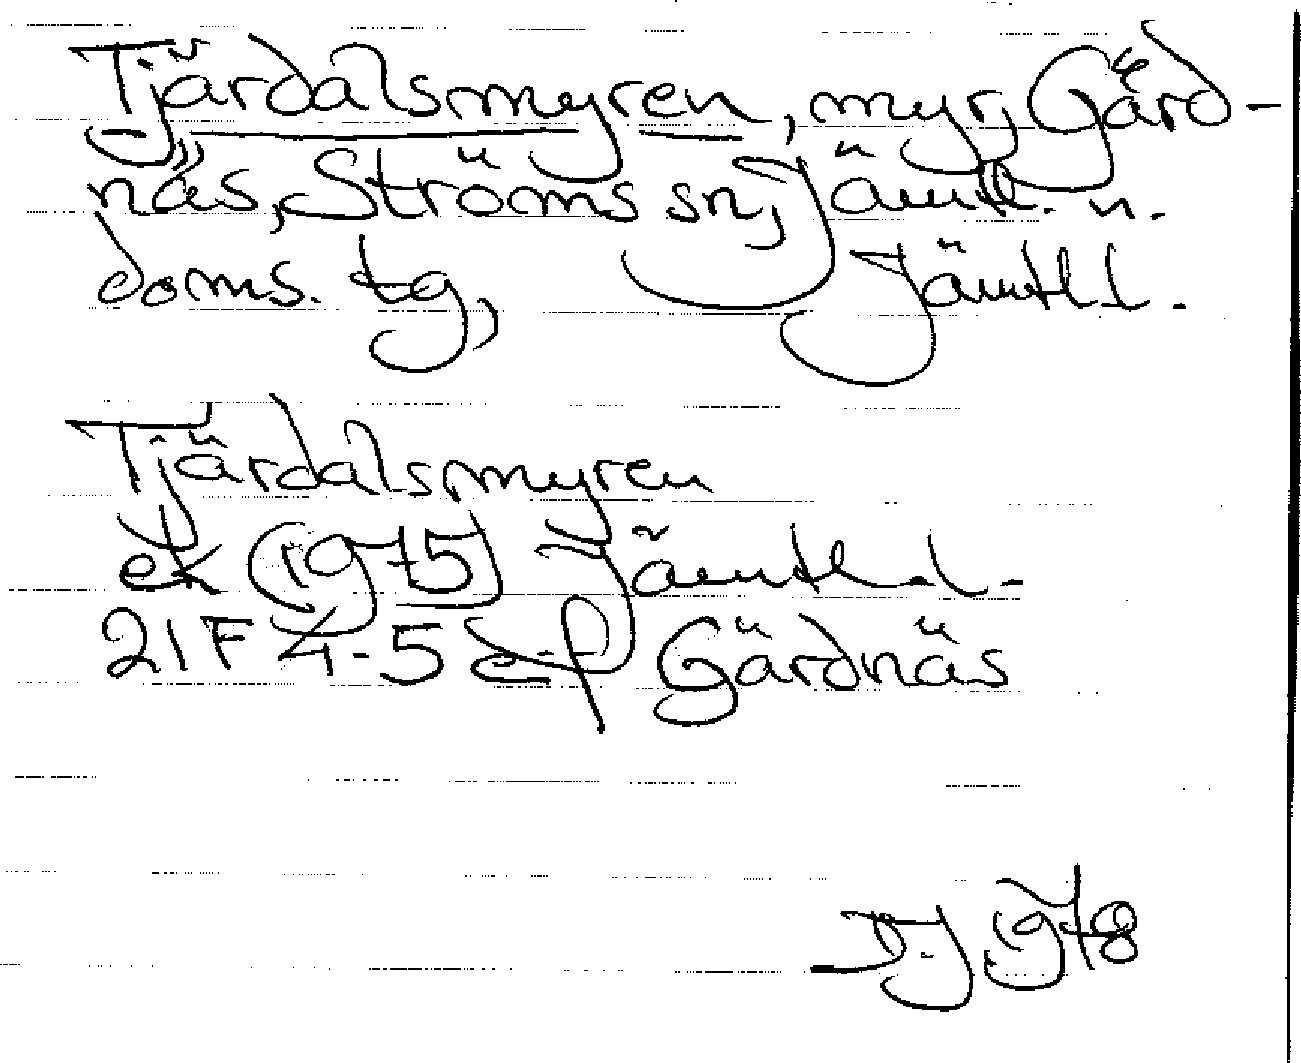 Tjärdalsmyren, myr, Gärd-
näs, Ströms sn, Jämtl. n.
doms. tg, Jämtl l.
Tjärdalsmyren
ek (1975) Jämtl. l.
21F 4-5 e-f Gärdnäs
D.J 1978